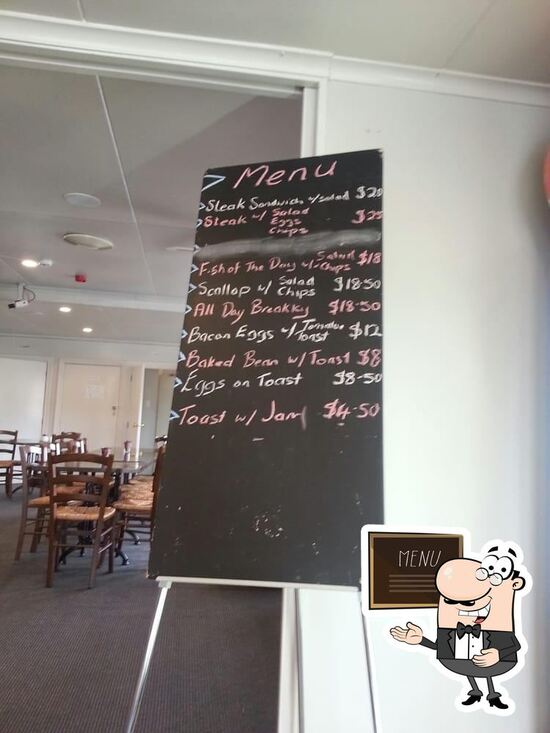 > Menu
> Steak Sandwich w/salad $20
> Steak w/ Salad $25
Eggs
Chips
> Fish of The Day w/ Salad Chips $18
> Scallop w/ Salad Chips $18.50
> All Day Breakky $18.50
> Bacon Eggs w/ Toast $12
> Baked Bean w/ Toast $8
> Eggs on Toast $8.50
> Toast w/ Jam $4.50
MENU